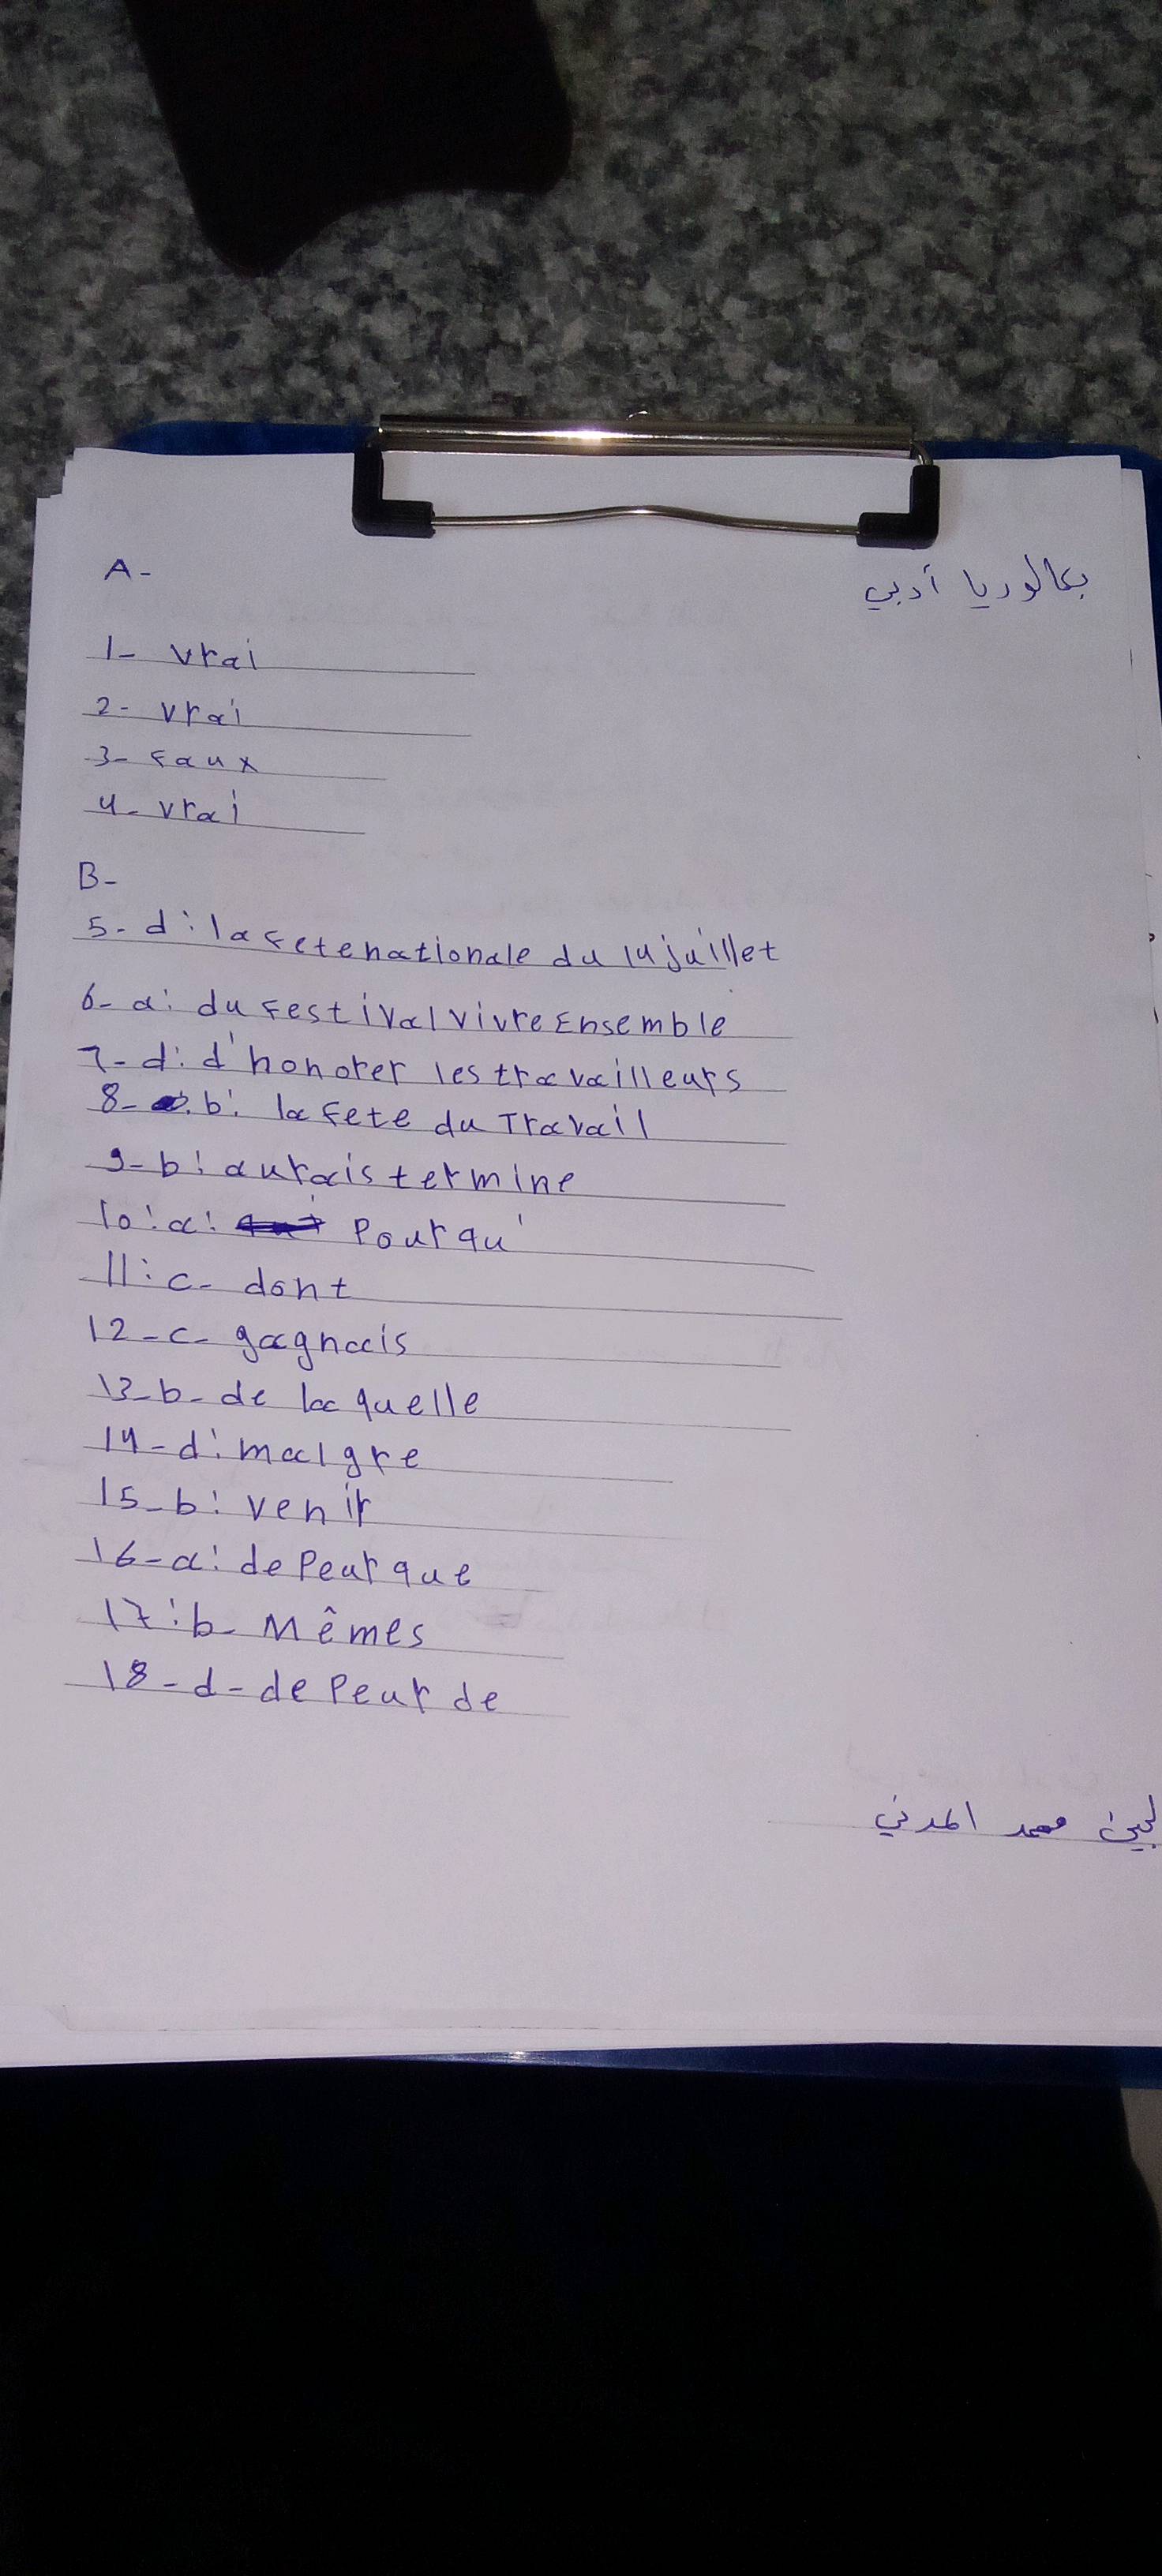 بكالوريا أدبي
A-
1- vrai
2- vrai
3- faux
4- vrai
B-
5- d: la fete nationale du 14 juillet
6- a: du festival vivre Ensemble
7- d: d'honorer les travailleurs
8- b: la fete du Travail
9- b: aurais termine
10: a: Pour qu'
11: c- dont
12- c- gagnais
13- b- de la quelle
14- d: malgre
15- b: venir
16- a: de Peur que
17: b- Mêmes
18- d- de Peur de
لجين محمد المدني